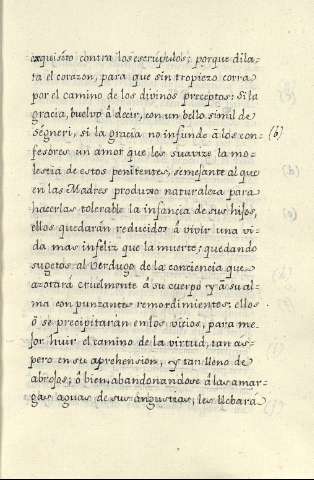 exquisito contra los escrúpulos; porque dila-
ta el corazon, para que sin tropiezo corra
por el camino de los divinos preceptos: Si la
gracia, buelvo á decir, con un bello simil de
Ségneri, si la gracia no infunde á los con-
fesores un amor que les suavize la mo-
lestia de estos penitentes, semejante al que
en las Madres produxo naturaleza para
hacerlas tolerable la infancia de sus hijos,
ellos quedarán reducidos á vivir una vi-
da mas infeliz que la muerte; quedando
sugetos al Verdugo de la conciencia que
azotará cruelmente á su cuerpo y á su al-
ma con punzantes remordimientos: ellos
ó se precipitarán en los vicios, para me-
jor huir el camino de la virtud, tan ás-
pero en su aprehension, y tan lleno de
abrojos; ó bien, abandonandose á las amar-
gas aguas de sus angustias, les llebara
(b)